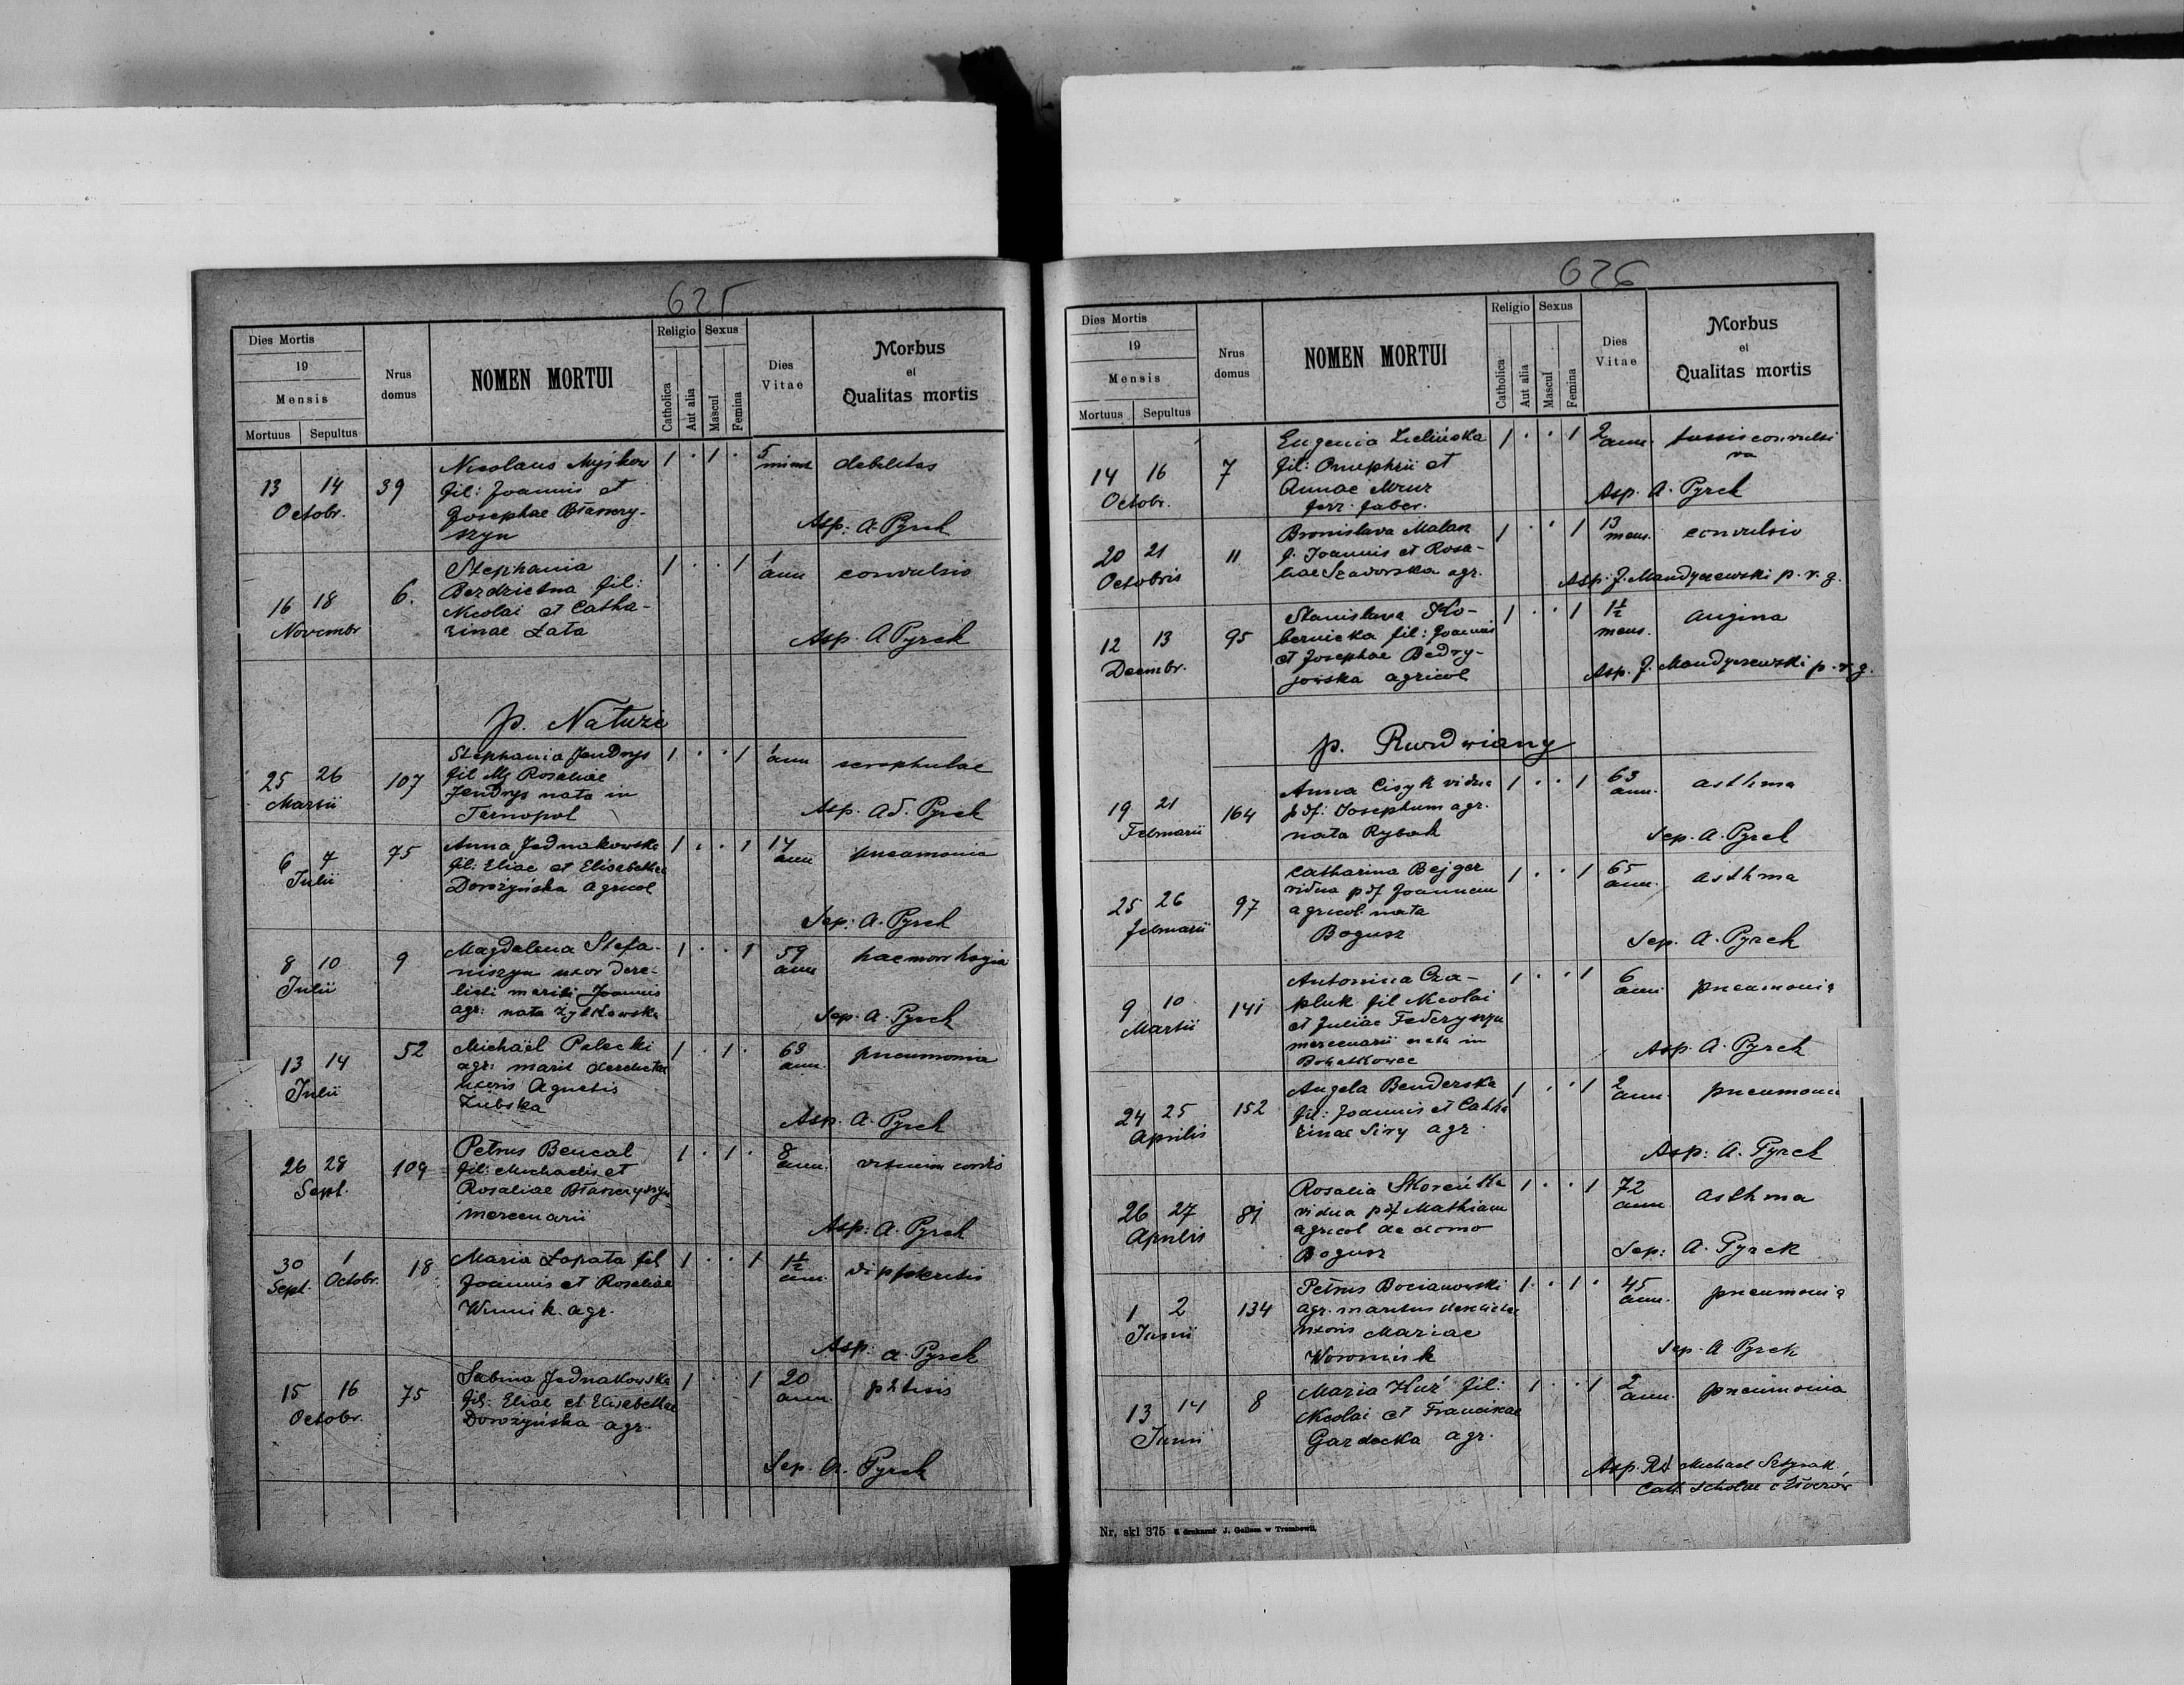 625
Dies Mortis
19
Mensis
Mortuus Sepultus
Nrus
domus
NOMEN MORTUI
Religio Sexus
Catholica
Aut alia
Mascul
Femina
Dies
Vitae
Morbus
et
Qualitas mortis
13 14 39 Nicolaus Myśkow 1 . 1 . 5 debilitas
Octobr. fil: Joannis et
Josephae Błaszczy-
szyn
Asp: A. Pyrek
16 18 6. Stephania 1 . . 1 1 ann convulsio
Novembr Bezdzietna fil:
Nicolai et Catha-
rinae Łata
Asp. A Pyrek
p. Naturze
25 26 107 Stephania Jendrys 1 . . 1 1 ann scrophulae
Martii fil Mj Rosaliae
Jendrys nata in
Ternopol
Asp. Ad. Pyrek
6 7 75 Anna Jednakowska 1 . . 1 14 ann pneumonia
Julii fil: Eliae et Elisabethae
Dorożyńska agricol
Sep: A. Pyrek
8 10 9 Magdalena Stefa- 1 . . 1 59 ann haemorrhagia
Julii niszyn uxor dere-
licti mariti Joannis
agr: nata
Sep. A. Pyrek
13 14 52 Michaël Pelecki 1 . 1 . 63 ann. pneumonia
Julii agr: marit derelictae
uxoris Agnetis
Zubska
Asp. A. Pyrek
26 28 109 Petrus Bencal 1 . 1 . 8 ann. vitium cordis
Sept. fil: Michaelis et
Rosaliae Błaszczyszyn
mercenarii
Asp. A. Pyrek
30 1 18 Maria Łopata fil 1 . . 1 1½ ann.
Sept. Octobr. Joannis et Rosaliae
Winnik. agr.
Asp. A. Pyrek
15 16 75 Sabina Jednakowska 1 . . 1 20 ann. phtisis
Octobr. fil: Eliae et Elisabethae
Dorożyńska agr.
Sep. A. Pyrek
626
Dies Mortis
19
Mensis
Mortuus Sepultus
Nrus
domus
NOMEN MORTUI
Religio Sexus
Catholica
Aut alia
Mascul
Femina
Dies
Vitae
Morbus
et
Qualitas mortis
14 16 7 Eugenia Zielińska 1 . . 1 2 ann. tussis convulsi
Octobr. fil: Onuphrii et va
Annae Mruz
ferr. faber.
Asp. A. Pyrek
20 21 11 Bronislava Malak 1 . . 1 13 mens. convulsio
Octobris f. Joannis et Rosa-
liae Szaworska agr.
Asp. J. Mandyczewski p. r. g.
12 13 95 Stanislava Sko- 1 . . 1 1½ mens. angina
Decembr. bernicka fil: Joannis
et Josephae Bedry-
jowska agricol
Asp. J. Mandyczewski p. r. g.
p. Rurdwiany
19 21 164 Anna Cisyk vidua 1 . . 1 63 ann. asthma
Februarii p df: Josephum agr.
nata Rybak
Sep. A. Pyrek
25 26 97 Catharina Bejger 1 . . 1 65 ann. asthma
Februarii vidua p df Joannem
agricol: nata
Bogusz
Sep. A. Pyrek
9 10 141 Antonina Cza- 1 . . 1 6 ann. pneumonia
Martii pluk fil Nicolai
et Juliae Federyszyn
mercenarii nata in
Asp. A. Pyrek
24 25 152 Angela Benderska 1 . . 1 2 ann. pneumonia
Aprilis fil: Joannis et Catha
rinae Siry agr.
Asp: A. Pyrek
26 27 81 Rosalia Skoreńka 1 . . 1 72 ann asthma
Aprilis vidua p df Mathiam
agricol de domo
Bogusz
Sep: A. Pyrek
1 2 134 Petrus Bocianowski 1 . 1 . 45 ann. pneumonia
Junii agr. maritus derelictae
uxoris Mariae
Woronink
Sep. A Pyrek
13 14 8 Maria Huź fil: 1 . . 1 2 ann. pneumonia
Junii Nicolai et Franciscae
Gardecka agr.
Asp. Rd. Michael
Cath. scholae
Nr. skl 375 Z drukarni J. Gellesa w Trembowli.